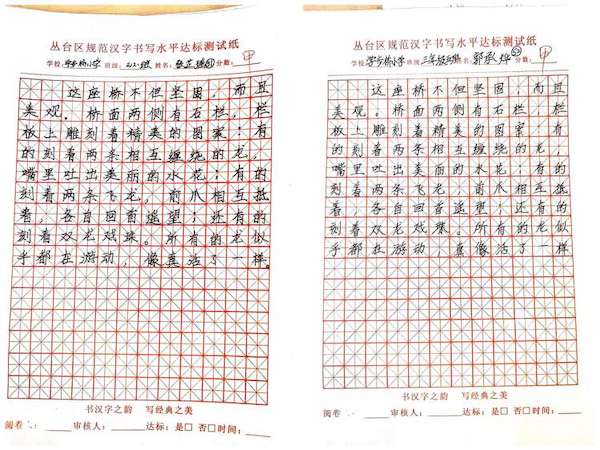 丛台区规范汉字书写水平达标测试纸
学校: 班级: 姓名: 分数: 甲
这座桥不但坚固,而且
美观。桥面两侧有石栏,栏
板上雕刻着精美的图案:有
的刻着两条相互缠绕的龙,
嘴里吐出美丽的水花;有的
刻着两条飞龙,前爪相互抵
着,各自回首遥望;还有的
刻着双龙戏珠。所有的龙似
乎都在游动,像真活了一样。
书汉字之韵 写经典之美
阅卷 审核人: 达标:是□ 否□时间:
丛台区规范汉字书写水平达标测试纸
学校: 班级: 姓名: 分数: 甲
这座桥不但坚固,而且
美观。桥面两侧有石栏,栏
板上雕刻着精美的图案:有
的刻着两条相互缠绕的龙,
嘴里吐出美丽的水花;有的
刻着两条飞龙,前爪相互抵
着,各自回首遥望;还有的
刻着双龙戏珠。所有的龙似
乎都在游动,真像活了一样
书汉字之韵 写经典之美
阅卷 审核人: 达标:是□ 否□时间: